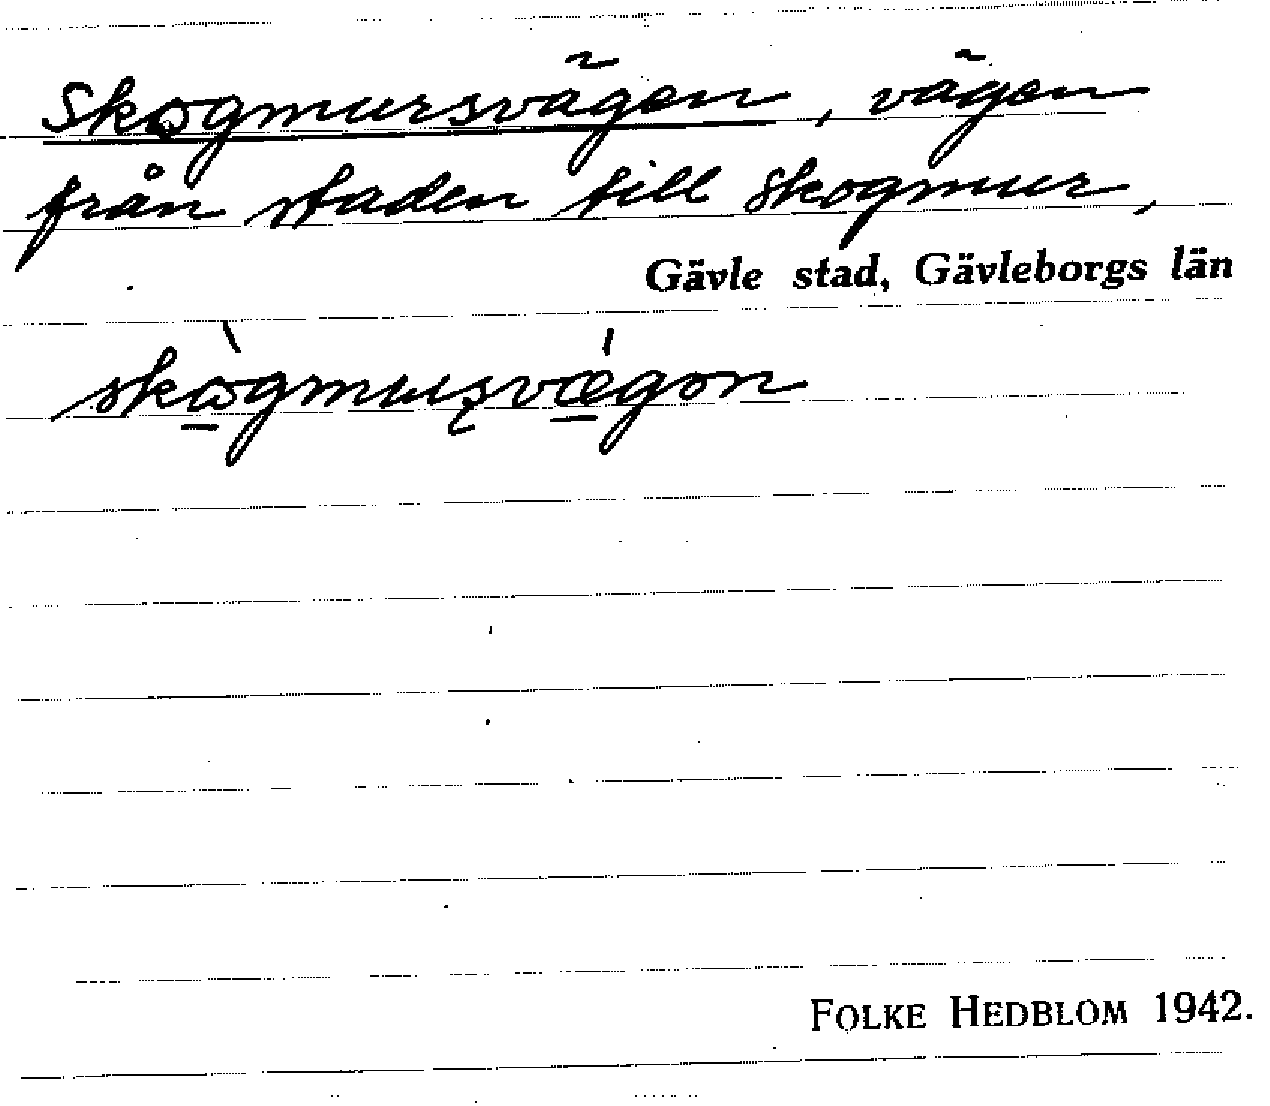 Skogmursvägen, vägen
från staden till Skogmur,
Gävle stad, Gävleborgs län
skògmuʂvǽgən
FOLKE HEDBLOM 1942.